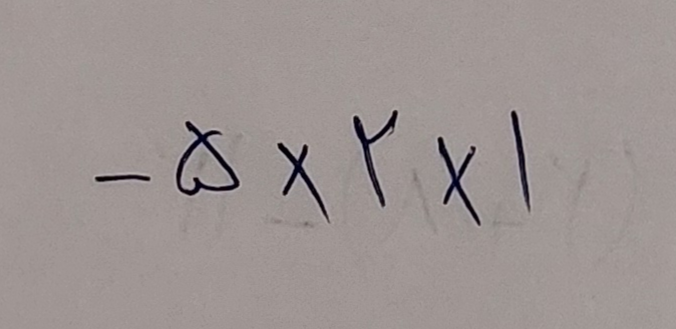 - ۵ × ۲ × ۱